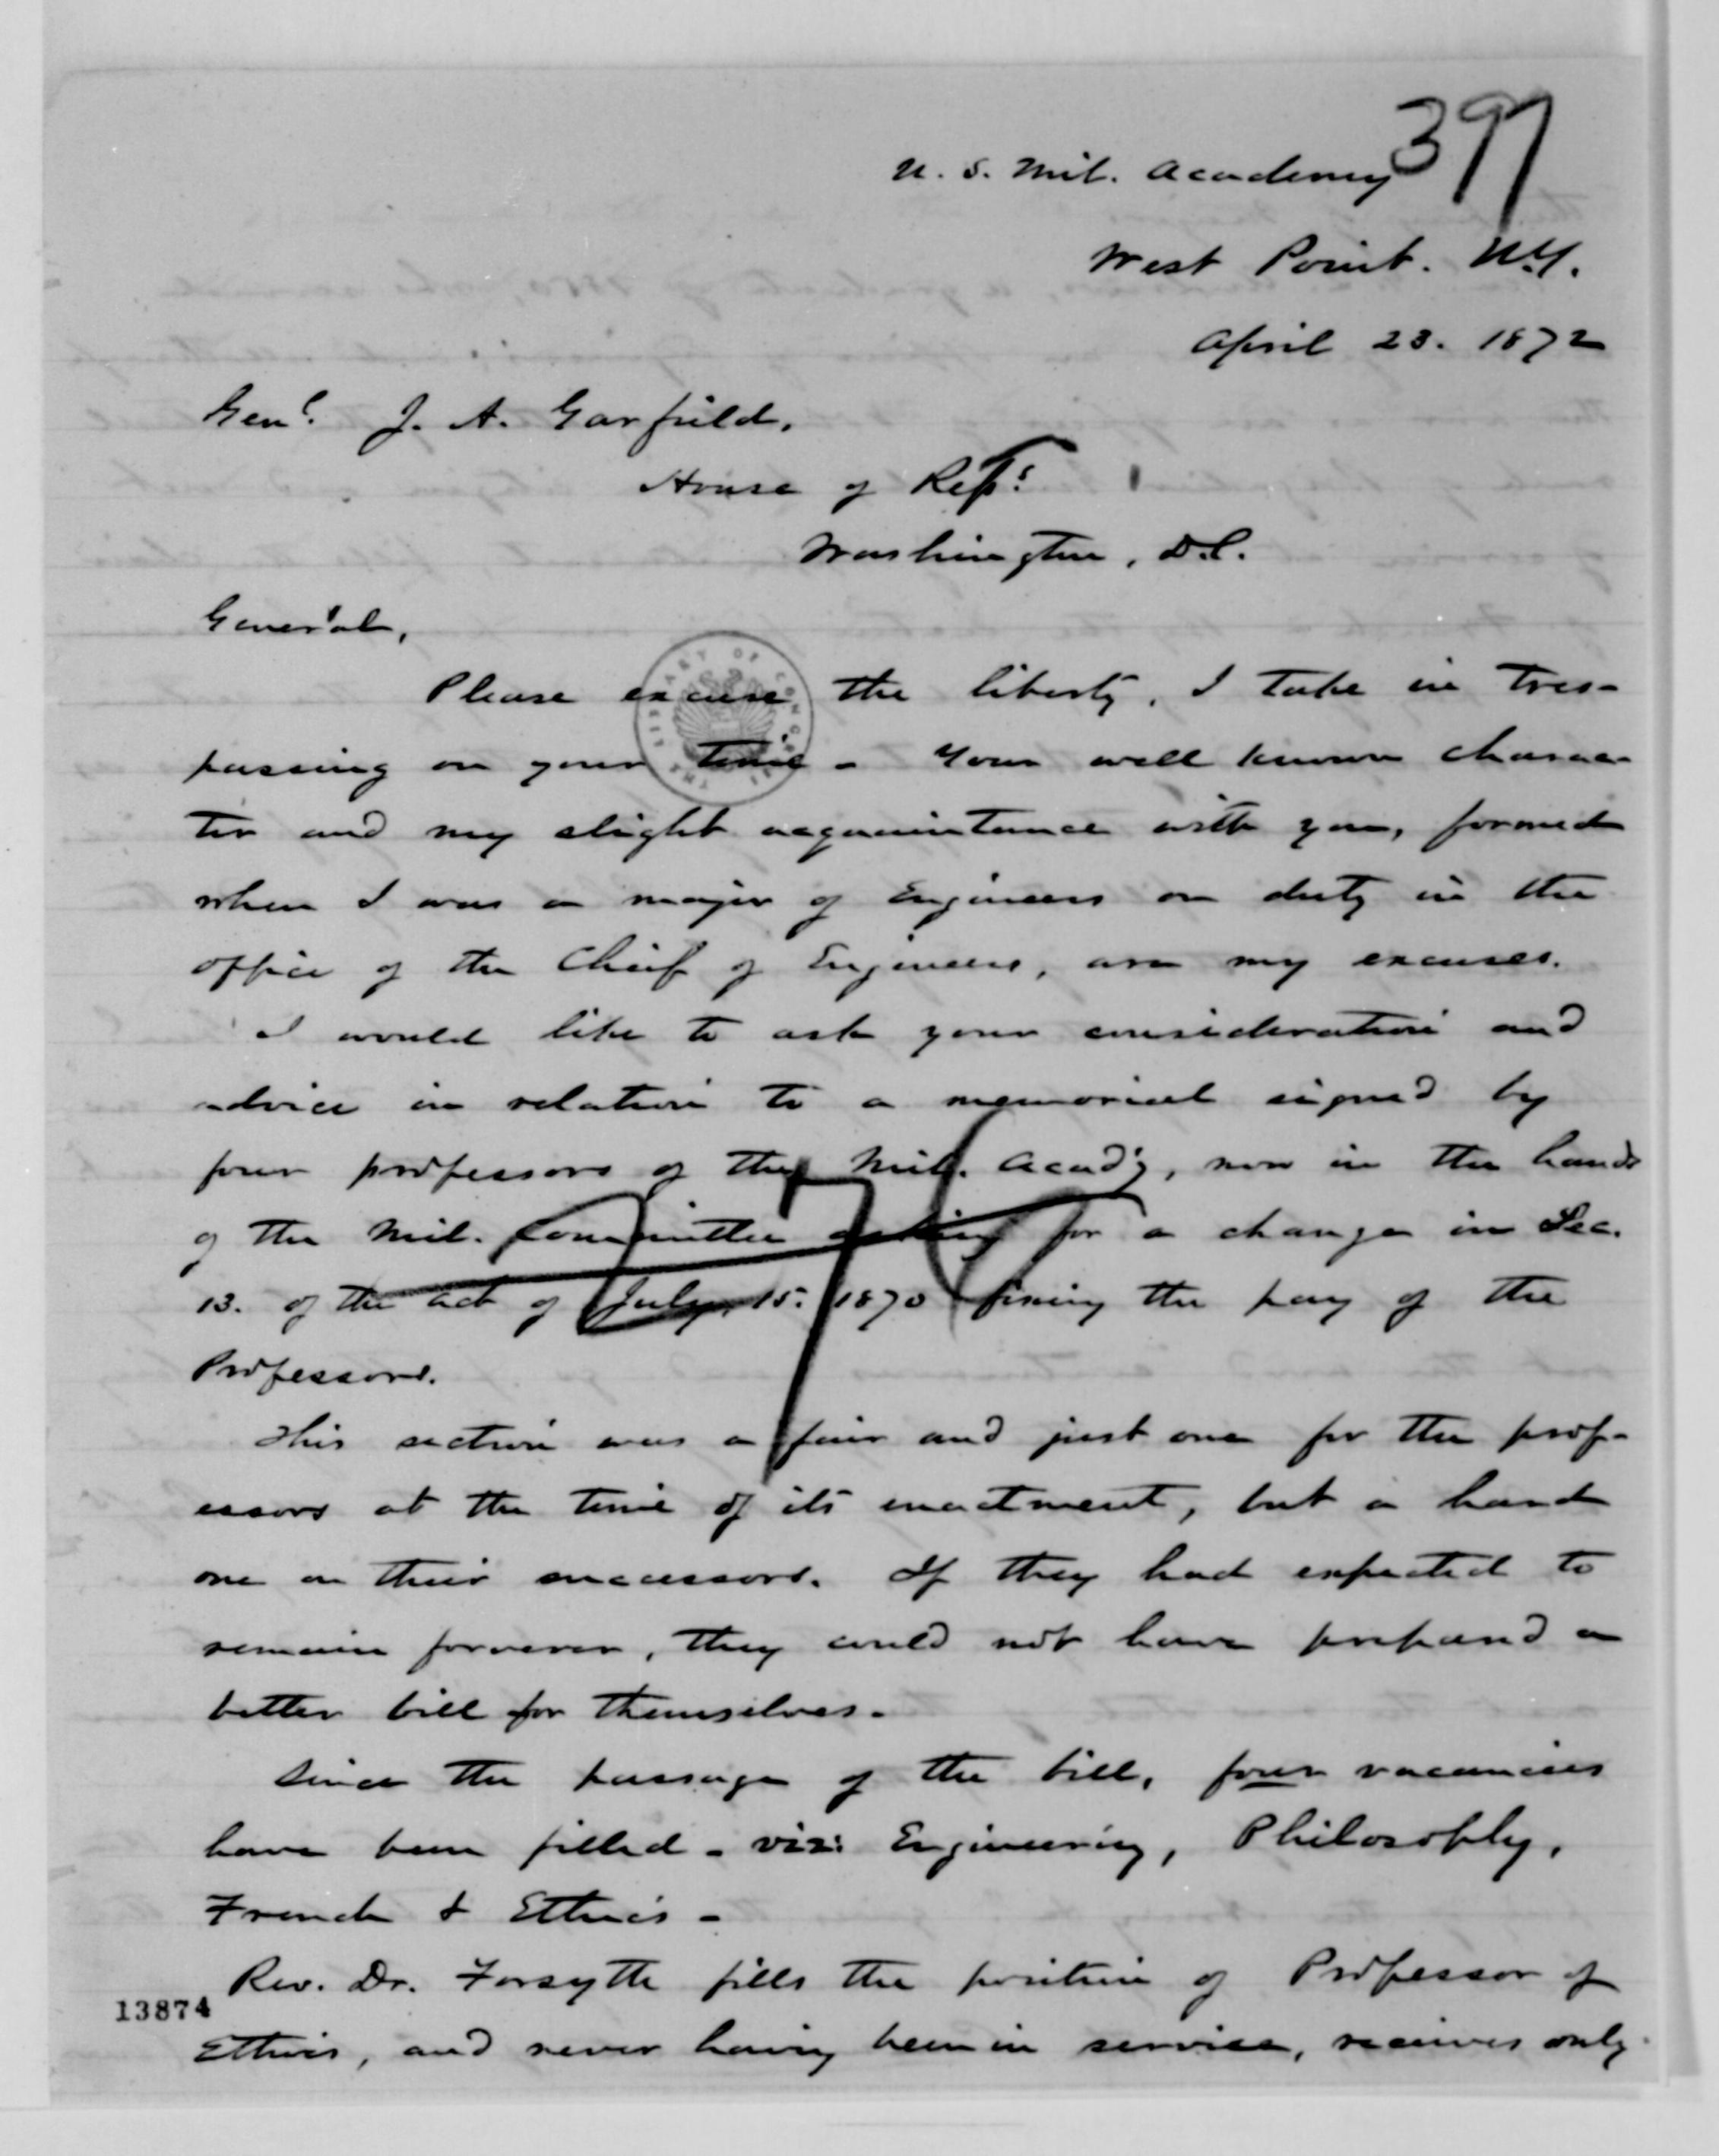 397
U. S. Mil. Academy
West Point. N.Y.
April 23. 1872
Genl. J. A. Garfield,
House of Reps.
Washington, D.C.
General,
Please excuse the liberty, I take in tres-
passing on your time - Your well known charac-
ter and my slight acquaintance with you, formed
when I was a major of Engineers on duty in the
office of the Chief of Engineers, are my excuses.
I would like to ask your consideration and
advice in relation to a memorial signed by
four professors of the Mil. Acad'y, now in the hands
of the Mil. Committee asking for a change in Sec.
13. of the act of July, 15. 1870 fixing the pay of the
Professors.
This section was a fair and just one for the prof-
essors at the time of its enactment, but a hard
one on their successors. If they had expected to
remain forever, they could not have prepared a
better bill for themselves.
Since the passage of the bill, four vacancies
have been filled - viz: Engineering, Philosophy,
French & Ethics -
Rev. Dr. Forsyth fills the position of Professor of
13874
Ethics, and never having been in service, receives only
LIBRARY OF CONGRESS